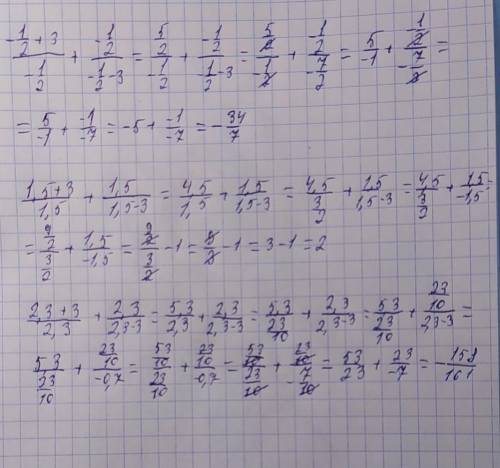 (-1/2 + 3)/(-1/2) + (-1/2)/(-1/2 - 3) = (5/2)/(-1/2) + (-1/2)/(-1/2 - 3) = (5/2)/(-1/2) + (-1/2)/(-7/2) = 5/-1 + (-1/2)/(-7/2) =
= 5/-1 + -1/-7 = -5 + -1/-7 = -34/7
(1,5+3)/1,5 + 1,5/(1,5-3) = 4,5/1,5 + 1,5/(1,5-3) = 4,5/(3/2) + 1,5/(1,5-3) = 4,5/(3/2) + 1,5/-1,5 =
= (9/2)/(3/2) + 1,5/-1,5 = (9/2)/(3/2) - 1 = - 1 = 3-1 = 2
(2,3+3)/2,3 + 2,3/(2,3-3) = 5,3/2,3 + 2,3/(2,3-3) = 5,3/(23/10) + 2,3/(2,3-3) = 53/(23/10) + (23/10)/(2,3-3) =
5,3/(23/10) + (23/10)/-0,7 = (53/10)/(23/10) + (23/10)/-0,7 = (53/10)/(23/10) + (23/10)/(-7/10) = 53/23 + 23/-7 = -158/161